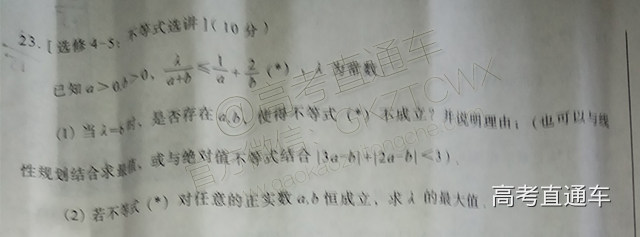 23. [选修4-5: 不等式选讲](10分)
已知 a>0,b>0, λ/(a+b) ≤ 1/a + 2/b (*), λ 为常数
(1) 当 λ= 时、是否存在 a,b、使得不等式 (*) 不成立? 并说明理由; (也可以与线
性规划结合求最值、或与绝对值不等式结合 |3a-b|+|2a-b|<3).
(2) 若不等式 (*) 对任意的正实数 a,b 恒成立, 求 λ 的最大值.
@高考直通车
官方微信: GKZTCWX
高考直通车